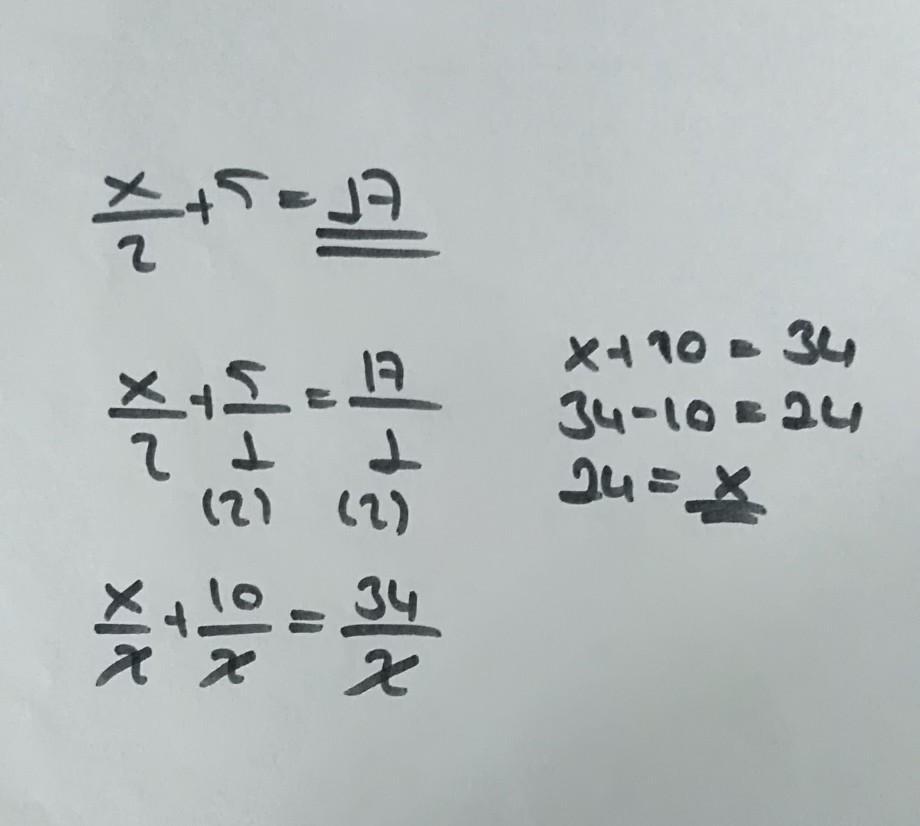 x/2 + 5 = 17
x/2 + 5/1 = 17/1
(2) (2)
x/2 + 10/2 = 34/2
x + 10 = 34
34 - 10 = 24
24 = x